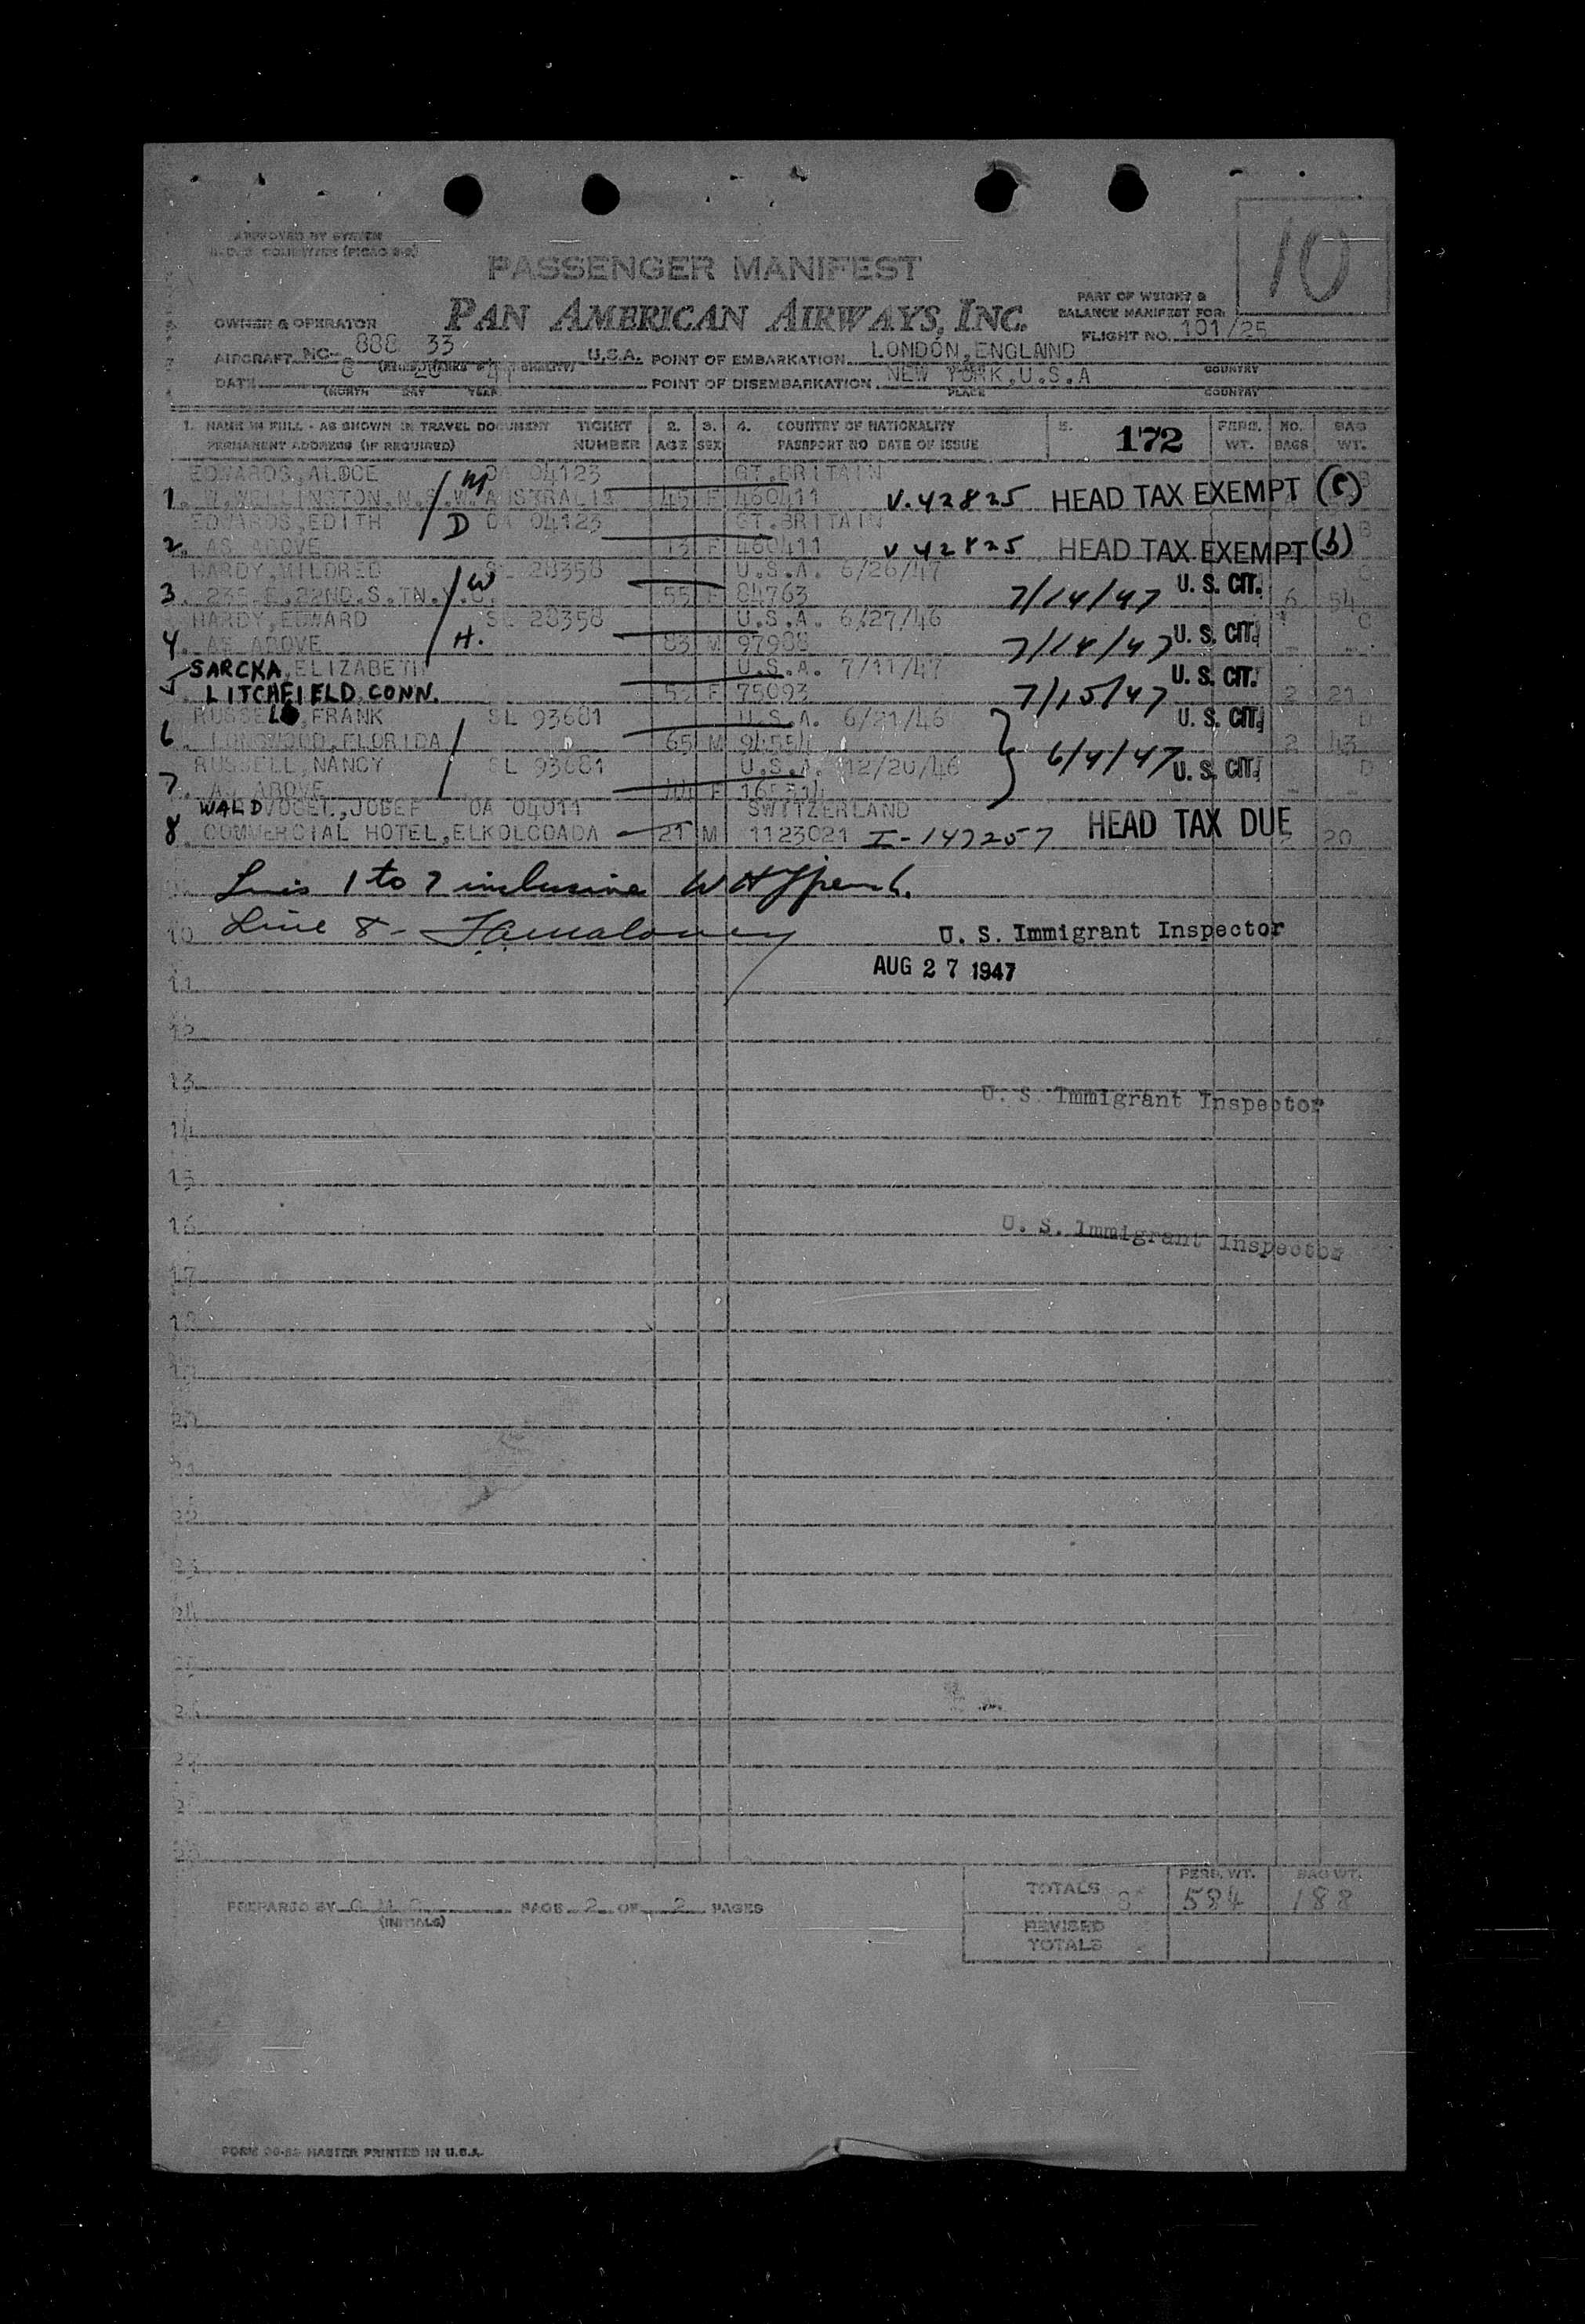 APPROVED BY SYSTEM
COMMITTEE (PICAO
10
PASSENGER MANIFEST
PAN AMERICAN AIRWAYS, INC.
PART OF WEIGHT &
BALANCE MANIFEST FOR:
OWNER & OPERATOR
FLIGHT NO. 101/25
AIRCRAFT NC- 888 33 U.S.A. POINT OF EMBARKATION LONDON, ENGLAND
DATE 8 47 POINT OF DISEMBARKATION NEW YORK, U.S.A
(MONTH DAY YEAR PLACE COUNTRY
1. NAME IN FULL - AS SHOWN IN TRAVEL DOCUMENT TICKET 2. 3. 4. COUNTRY OF NATIONALITY 5. 172 PERS. NO. BAG
PERMANENT ADDRESS (IF REQUIRED) NUMBER AGE SEX PASSPORT NO DATE OF ISSUE WT. BAGS WT.
EDWARDS, M OA 04123 GT.BRITAIN B
1. W.WELLINGTON,N.S.W.AUSTRALIA 45 F 460411 V.42825 HEAD TAX EXEMPT (c)
EDWARDS, EDITH D OA 04123 GT.BRITAIN B
2. AS ABOVE 13 F 460411 V 42825 HEAD TAX EXEMPT (b)
HARDY, MILDRED W SL 28358 U.S.A. 6/26/47 C
3. 235 E.22ND.S.TN.Y.C. 55 F 84763 7/14/47 U. S. CIT. 6 54
HARDY, EDWARD SL 28358 U.S.A. 6/27/46 C
4. AS ABOVE H. 83 M 97988 7/14/47 U. S. CIT.
SARCKA, ELIZABETH U.S.A. 7/11/47 U. S. CIT.
5 LITCHFIELD, CONN. F 75093 7/15/47 2 21
RUSSELL, FRANK SL 93681 U.S.A. 6/21/46 U. S. CIT. D
6. LONGWOOD, FLORIDA 65 M 94554 6/4/47 2 43
RUSSELL, NANCY SL 93681 U.S.A. 12/20/46 U. S. CIT. D
7. AS ABOVE F
WALDVOGEL, JOSEF OA 04011 SWITZERLAND
8. COMMERCIAL HOTEL, 21 M 1123021 I-147257 HEAD TAX DUE 20
1 to 7 inclusive
10 Line 8-
U. S. Immigrant Inspector
AUG 27 1947
11
12
13
U. S. Immigrant Inspector
14
15
16
U. S. Immigrant Inspector
17
18
19
20
21
22
23
24
25
26
27
28
29
TOTALS 8 PERS. WT. 584 BAG WT. 188
PREPARED BY PAGE 2 OF 2 PAGES
(INITIALS)
REVISED
TOTALS
MASTER PRINTED IN U.S.A.